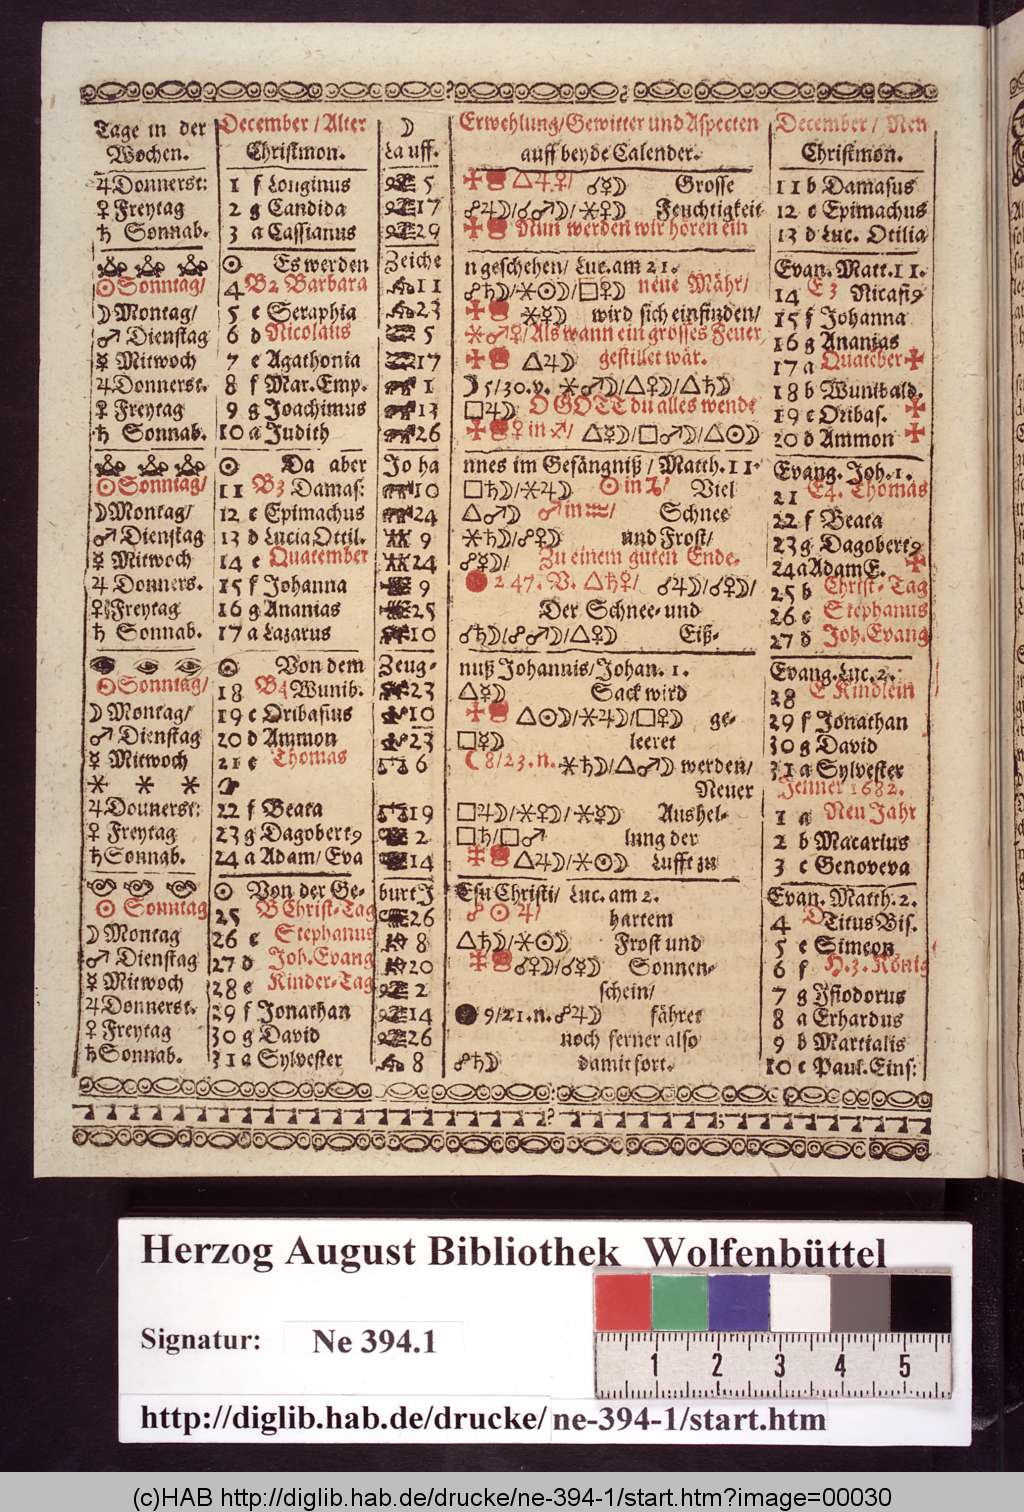 Tage in der December / Alter ☽ Erwehlung / Gewitter und Aspecten December / Neu
Wochen. Christmon. Lauff. auff beyde Calender. Christmon.
♃ Donnerst: 1 f Longinus 5 △♃♀/ ☌☿☽ Grosse 11 b Damasus
♀ Freytag 2 g Candida 17 ☍♃☽/☌♂☽/⚹♀☽ Feuchtigkeit 12 c Epimachus
♄ Sonnab. 3 a Cassianus 29 Nun werden wir hören ein 13 d Luc. Otilia
☉ Es werden Zeiche n geschehen / Luc. am 21. Evan. Matt. 11.
☉ Sonntag / 4 B2 Barbara 11 ☍♄☽/⚹☉☽/□♀☽ neue Mähr / 14 E 3 Nicasi9
☽ Montag / 5 c Seraphia 23 ⚹☿☽ wird sich einfinden / 15 f Johanna
♂ Dienstag 6 d Nicolaus 5 ⚹♂♀/ Als wann ein grosses Feuer 16 g Ananias
☿ Mitwoch 7 e Agathonia 17 △♃☽ gestillet wär. 17 a Quateber
♃ Donnerst. 8 f Mar. Emp. 1 ☽ 5/30. v. ⚹♂☽/△♀☽/△♄☽ 18 b Wunibald.
♀ Freytag 9 g Joachimus 13 □♃☽ O GOTT du alles wende 19 c Oribas.
♄ Sonnab. 10 a Judith 26 ♀ in ♐/ △☿☽/□♂☽/△☉☽ 20 d Ammon
☉ Da aber Joha nnes im Gefängniß / Matth. 11. Evang. Joh. 1.
☉ Sonntag / 11 B3 Damas: 10 □♄☽/⚹♃☽ ☉ in ♑/ Viel 21 E4. Thomas
☽ Montag / 12 c Epimachus 24 △♂☽ ♂ in ♒/ Schnee 22 f Beata
♂ Dienstag 13 d Lucia Ottil. 9 ⚹♄☽/☍♀☽ und Frost / 23 g Dagobert9
☿ Mitwoch 14 e Quatember 24 ☍☿☽/ Zu einem guten Ende. 24 a Adam E.
♃ Donners. 15 f Johanna 9 2 47. V. △♄♀/ ☌♃☽/☌♀☽/ 25 b Christ-Tag
♀ Freytag 16 g Ananias 25 Der Schnee- und 26 c Stephanus
♄ Sonnab. 17 a Lazarus 10 ☌♄☽/☍♂☽/△♀☽ Eiß- 27 d Joh. Evang
☉ Von dem Zeug- nuß Johannis / Johan. 1. Evang. Luc. 2.
☉ Sonntag / 18 B4 Wunib. 23 △☿☽ Sack wird 28 E Kindlein
☽ Montag / 19 c Oribasius 10 △☉☽/⚹♃☽/□♀☽ ge- 29 f Jonathan
♂ Dienstag 20 d Ammon 23 □☿☽ leeret 30 g David
☿ Mitwoch 21 e Thomas 6 ☾ 8/23. n. ⚹♄☽/△♂☽ werden / 31 a Sylvester
⚹ ⚹ ⚹ Neuer Jenner 1682.
♃ Donnerst: 22 f Beata 19 □♃☽/⚹♀☽/⚹☿☽ Aushel- 1 a Neu Jahr
♀ Freytag 23 g Dagobert9 2 □♄/□♂ lung der 2 b Macarius
♄ Sonnab. 24 a Adam / Eva 14 △♃☽/⚹☉☽ Lufft zu 3 c Genoveva
☉ Von der Ge- burt J Esu Christi / Luc. am 2. Evan. Matth. 2.
☉ Sonntag 25 B Christ-Tag 26 ☍☉♃/ hartem 4 D Titus Bis.
☽ Montag 26 c Stephanus 8 △♄☽/⚹☉☽ Frost und 5 e Simeon
♂ Dienstag 27 d Joh. Evang 20 ☌♀☽/☌☿☽ Sonnen- 6 f H. 3. König
☿ Mitwoch 28 e Kinder-Tag 2 schein / 7 g Isiodorus
♃ Donnerst. 29 f Jonathan 14 9/21. n. ☍♃☽ fähret 8 a Erhardus
♀ Freytag 30 g David 26 noch ferner also 9 b Martialis
♄ Sonnab. 31 a Sylvester 8 ☍♄☽ damit fort. 10 c Paul. Eins:
Herzog August Bibliothek Wolfenbüttel
Signatur: Ne 394.1
1 2 3 4 5
http://diglib.hab.de/drucke/ne-394-1/start.htm
(c)HAB http://diglib.hab.de/drucke/ne-394-1/start.htm?image=00030